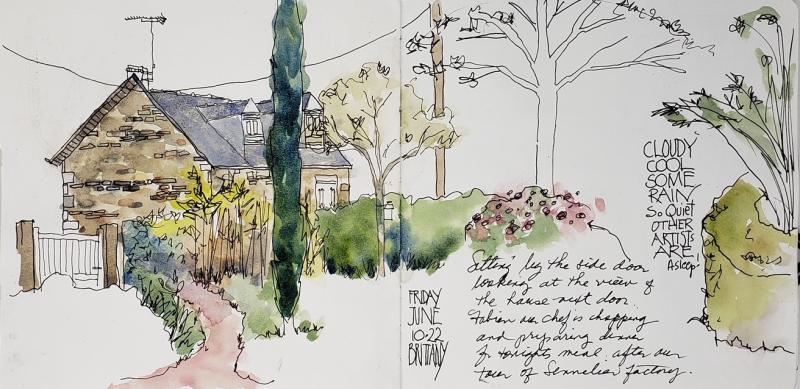 CLOUDY
COOL
SOME
RAIN,
So QUIET
OTHER
ARTISTS
ARE
Asleep!
Sitting by the side door
looking at the view of
the house next door.
Fabien our chef is chopping
and preparing dinner
for tonights meal. after our
tour of Sennelier factory.
FRIDAY
JUNE
10·22
BRITTANY